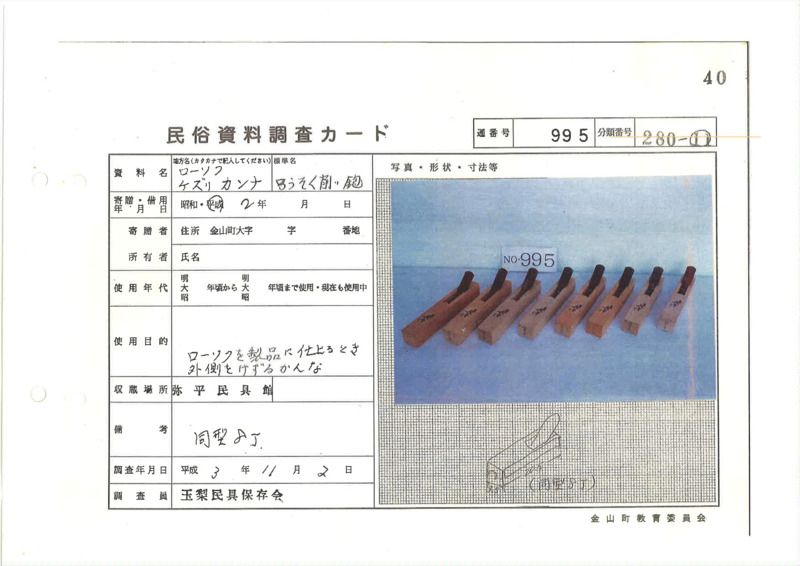 40
民俗資料調査カード
通番号 995 分類番号 280-11
資料名
地方名(カタカナで記入してください) 標準名
ローソク
ケズリカンナ
ろうそく削り鉋
写真・形状・寸法等
寄贈・借用
年月日
昭和・平成 2年 月 日
寄贈者 住所 金山町大字 字 番地
所有者 氏名
使用年代
明 大 昭 年頃から 明 大 昭 年頃まで使用・現在も使用中
使用目的
ローソクを製品に仕上るとき
外側をけずるかんな
収蔵場所 弥平民具館
備考 同型8丁
調査年月日 平成 3年 11月 2日
調査員 玉梨民具保存会
NO.995
(同型8丁)
金山町教育委員会